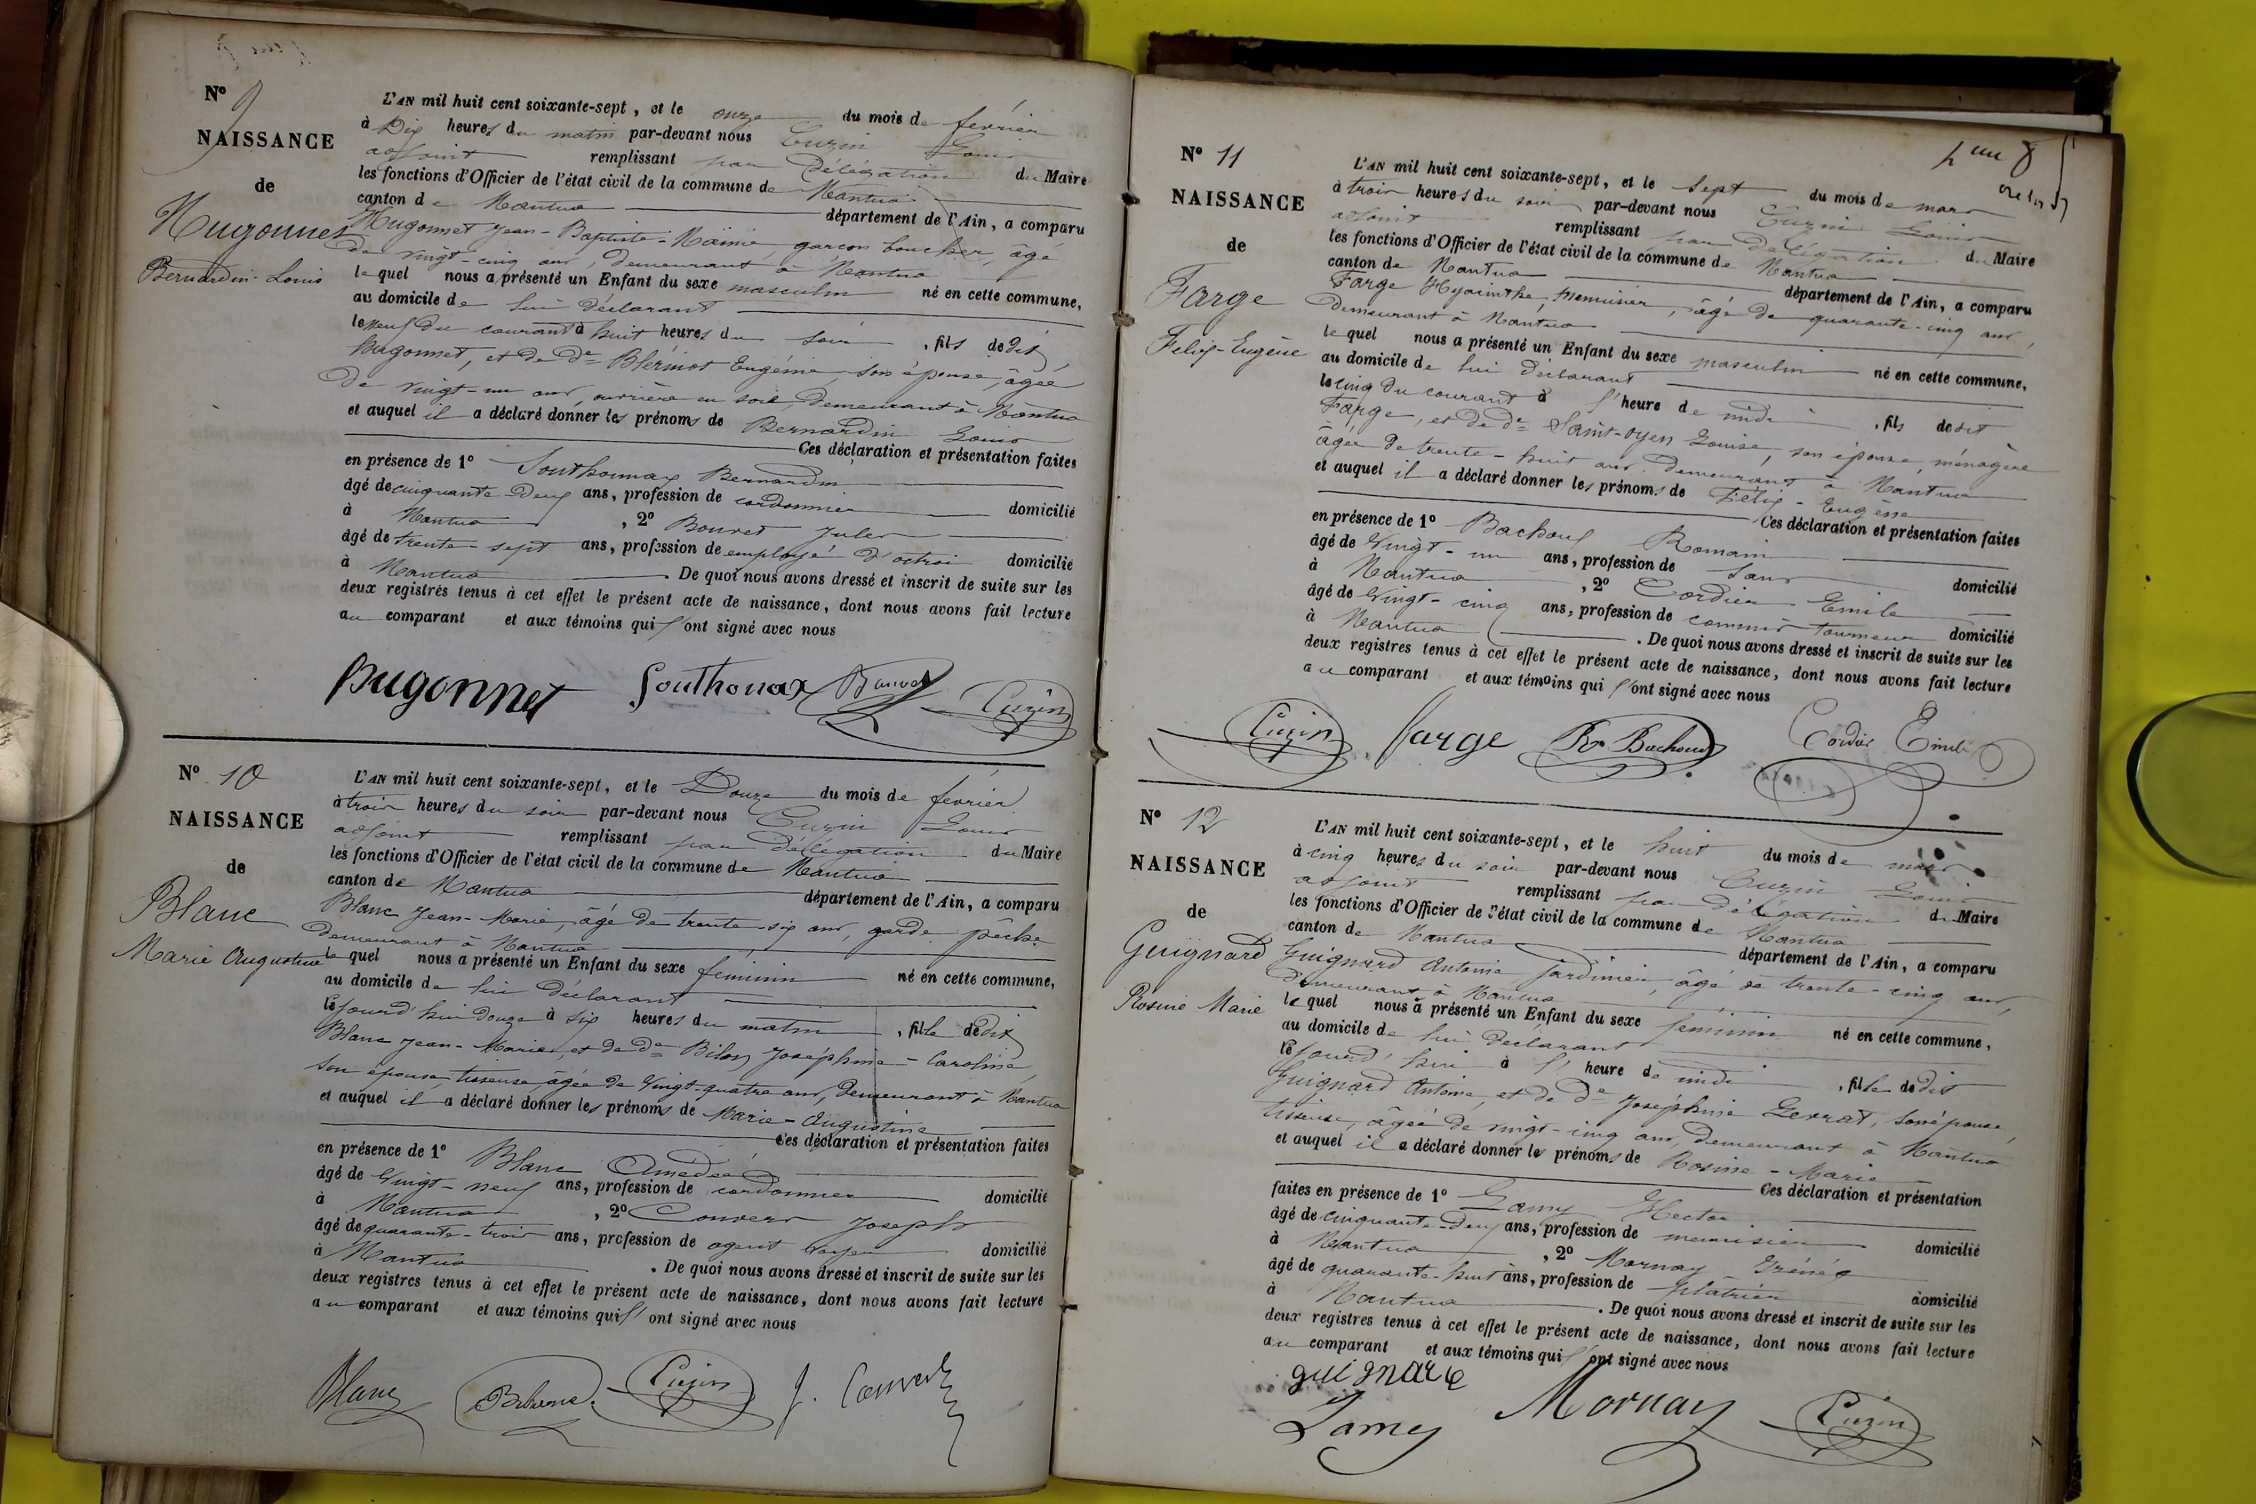 N° 9
NAISSANCE
de
Hugonnet
Bernardin-Louis
L'AN mil huit cent soixante-sept, et le onze du mois de février
à Dix heures du matin par-devant nous Cuzin Louis
adjoint remplissant par délégation du Maire
les fonctions d'Officier de l'état civil de la commune de Nantua
canton de Nantua département de l'Ain, a comparu
Hugonnet Jean-Baptiste garçon boucher, âgé
de vingt-cinq ans, demeurant à Nantua
lequel nous a présenté un Enfant du sexe masculin né en cette commune,
au domicile de lui déclarant
le neuf du courant à huit heures du soir, fils dedit
Hugonnet, et de de Eugénie, son épouse, âgée
de vingt-un ans, ouvrière en soie, demeurant à Nantua
et auquel il a déclaré donner les prénoms de Bernardin Louis
Ces déclaration et présentation faites
en présence de 1° Southonnax Bernardin
âgé de cinquante-deux ans, profession de cordonnier domicilié
à Nantua, 2° Bouvet Jules
âgé de trente-sept ans, profession de employé d'octroi domicilié
à Nantua. De quoi nous avons dressé et inscrit de suite sur les
deux registres tenus à cet effet le présent acte de naissance, dont nous avons fait lecture
au comparant et aux témoins qui l'ont signé avec nous
Hugonnet Southonax Bouvet Cuzin
N° 10
NAISSANCE
de
Blanc
Marie Augustine
L'AN mil huit cent soixante-sept, et le Douze du mois de février
à trois heures du soir par-devant nous Cuzin Louis
adjoint remplissant par délégation du Maire
les fonctions d'Officier de l'état civil de la commune de Nantua
canton de Nantua département de l'Ain, a comparu
Blanc Jean-Marie, âgé de trente-six ans, garde pêche
demeurant à Nantua
lequel nous a présenté un Enfant du sexe féminin né en cette commune,
au domicile de lui déclarant
le jourd'hui douze à six heures du matin, fille dedit
Blanc Jean-Marie, et de de Joséphine-Caroline,
son épouse, tisseuse, âgée de vingt-quatre ans, demeurant à Nantua
et auquel il a déclaré donner les prénoms de Marie-Augustine
Ces déclaration et présentation faites
en présence de 1° Blanc Amédée
âgé de vingt-neuf ans, profession de cordonnier domicilié
à Nantua, 2° Convers Joseph
âgé de quarante-trois ans, profession de agent voyer domicilié
à Nantua. De quoi nous avons dressé et inscrit de suite sur les
deux registres tenus à cet effet le présent acte de naissance, dont nous avons fait lecture
au comparant et aux témoins qui l'ont signé avec nous
Blanc Cuzin J. Convers
N° 11
NAISSANCE
de
Farge
Felix-Eugène
L'AN mil huit cent soixante-sept, et le sept du mois de mars
à trois heures du soir par-devant nous Cuzin Louis
adjoint remplissant par délégation du Maire
les fonctions d'Officier de l'état civil de la commune de Nantua
canton de Nantua département de l'Ain, a comparu
Farge Hyacinthe, menuisier, âgé de quarante-cinq ans,
demeurant à Nantua
lequel nous a présenté un Enfant du sexe masculin né en cette commune,
au domicile de lui déclarant
le cinq du courant à l'heure de midi, fils dedit
Farge, et de de Saint-oyen Louise, son épouse, ménagère
âgée de trente-huit ans, demeurant à Nantua
et auquel il a déclaré donner les prénoms de Félix-Eugène
Ces déclaration et présentation faites
en présence de 1° Bachoud Romain
âgé de Vingt-un ans, profession de sans domicilié
à Nantua, 2° Cordier Emile
âgé de Vingt-cinq ans, profession de commis domicilié
à Nantua. De quoi nous avons dressé et inscrit de suite sur les
deux registres tenus à cet effet le présent acte de naissance, dont nous avons fait lecture
au comparant et aux témoins qui l'ont signé avec nous
Cuzin farge R. Bachoud Cordier Emile
N° 12
NAISSANCE
de
Guignard
Rosine Marie
L'AN mil huit cent soixante-sept, et le huit du mois de mars
à cinq heures du soir par-devant nous Cuzin Louis
adjoint remplissant par délégation du Maire
les fonctions d'Officier de l'état civil de la commune de Nantua
canton de Nantua département de l'Ain, a comparu
Guignard Antoine jardinier, âgé de trente-cinq ans,
demeurant à Nantua
lequel nous a présenté un Enfant du sexe féminin né en cette commune,
au domicile de lui déclarant
le jourd'hui à l'heure de midi, fille dedit
Guignard Antoine, et de de Joséphine Gerrat, son épouse,
tisseuse, âgée de vingt-cinq ans, demeurant à Nantua
et auquel il a déclaré donner les prénoms de Rosine-Marie
Ces déclaration et présentation
faites en présence de 1° Lamy Hector
âgé de cinquante-deux ans, profession de menuisier domicilié
à Nantua, 2° Mornay Irénée
âgé de quarante-huit ans, profession de plâtrier domicilié
à Nantua. De quoi nous avons dressé et inscrit de suite sur les
deux registres tenus à cet effet le présent acte de naissance, dont nous avons fait lecture
au comparant et aux témoins qui l'ont signé avec nous
guignard
Lamy Mornay Cuzin